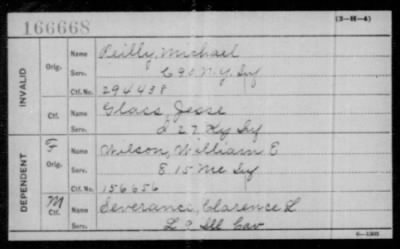 166668
(3-H-4)
INVALID
Orig.
Name Reilly, Michael
Serv. C 90 N.Y. Inf
Ctf. No. 294438
Ctf.
Name Glass, Jesse
Serv. D 27 Ky Inf
DEPENDENT
F
Orig.
Name Wilson, William E
Serv. E. 15 Me Inf
Ctf. No. 156656
M
Ctf.
Name Severance, Clarence L
Serv. L 2 Ill Cav